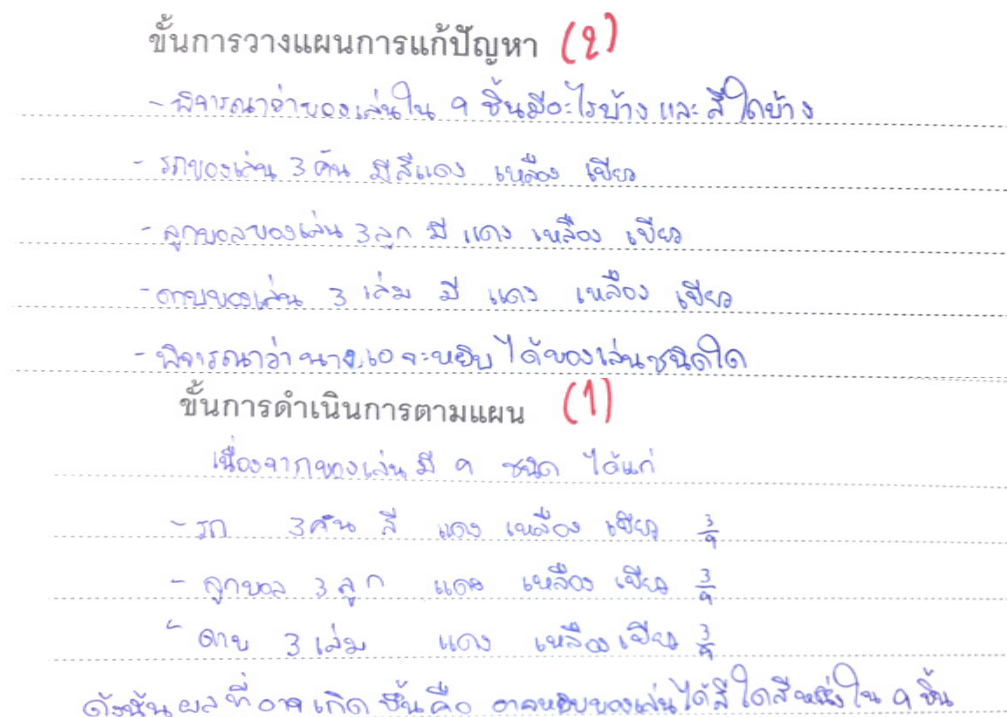 ขั้นการวางแผนการแก้ปัญหา (2)
- พิจารณาว่าของเล่นใน 9 ชิ้นมีอะไรบ้าง และสีใดบ้าง
- รถของเล่น 3 คัน มีสีแดง เหลือง เขียว
- ลูกบอลของเล่น 3 ลูก มี แดง เหลือง เขียว
- ดาบของเล่น 3 เล่ม มี แดง เหลือง เขียว
- พิจารณาว่า นางเอ จะหยิบได้ของเล่นชนิดใด
ขั้นการดำเนินการตามแผน (1)
เนื่องจากของเล่น มี 9 ชนิด ได้แก่
- รถ 3 คัน สี แดง เหลือง เขียว 3/9
- ลูกบอล 3 ลูก แดง เหลือง เขียว 3/9
- ดาบ 3 เล่ม แดง เหลือง เขียว 3/9
ดังนั้น ผลที่อาจเกิดขึ้นคือ อาจหยิบของเล่นได้สีใดสีหนึ่งใน 9 ชิ้น